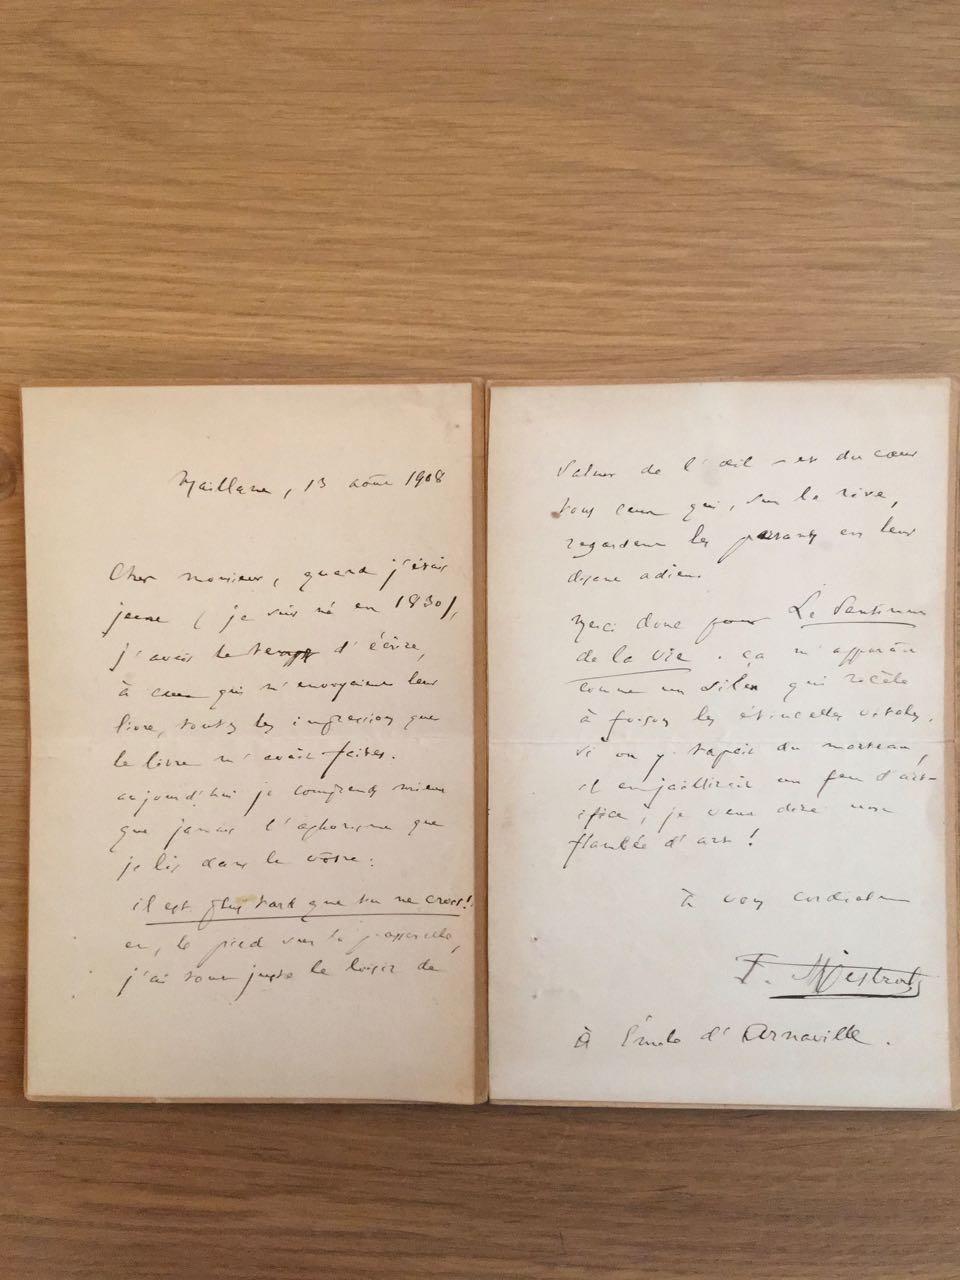 Maillane, 13 août 1908
Cher monsieur, quand j'étais
jeune (je suis né en 1830),
j'avais le temps d'écrire,
à ceux qui m'envoyaient leur
livre, toutes les impressions que
le livre m'avait faites.
aujourd'hui je comprends mieux
que jamais l'aphorisme que
je lis dans le vôtre:
il est plus tard que tu ne crois!
et, le pied sur la passerelle,
j'ai tout juste le loisir de
saluer de l'œil – et du cœur
tous ceux qui, sur la rive,
regardent les passants en leur
disant adieu.
Merci donc pour Le Sentiment
de la vie. ça m'apparaît
comme un silex qui recèle
à foison les étincelles vitales.
si on y tapait du marteau,
il en jaillirait un feu d'art-
ifice, je veux dire une
flambée d'art!
à vous cordialement
F. Mistral
À Émile d'Arnaville.